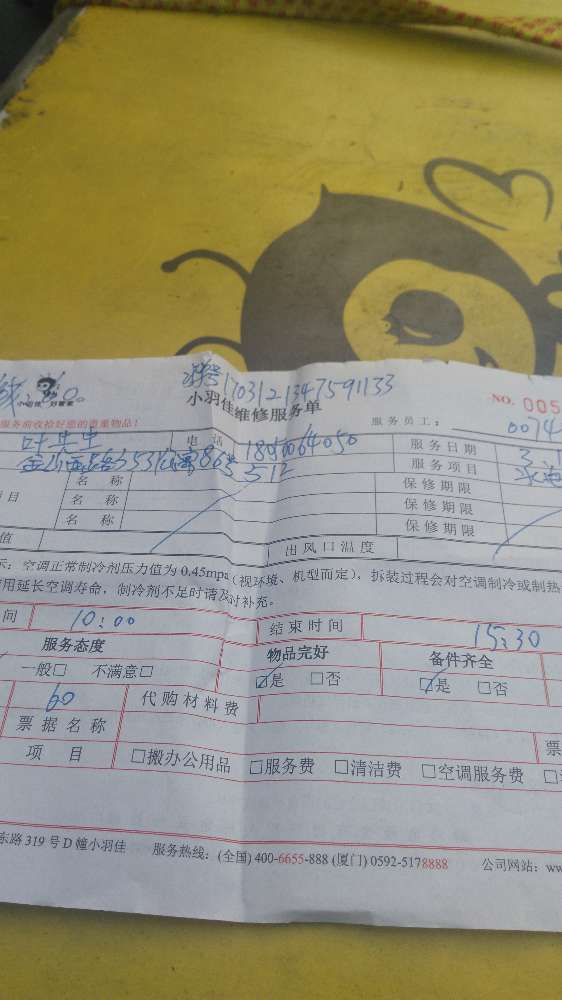 1703121347591133
小羽佳 好管家
小羽佳维修服务单 NO. 005
服务前收拾好您的贵重物品! 服务员工: 0074
叶先生 电话 18950064050 服务日期 3.1
512 服务项目
目 名称 保修期限
名称 保修期限
名称 保修期限
值 出风口温度
示:空调正常制冷剂压力值为 0.45mpa(视环境、机型而定),拆装过程会对空调制冷或制热
用延长空调寿命,制冷剂不足时请及时补充。
间 10:00 结束时间 15:30
服务态度 物品完好 备件齐全
一般□ 不满意□ ☑是 □否 ☑是 □否
60 代购材料费
票据名称 票
项目 □搬办公用品 □服务费 □清洁费 □空调服务费
东路 319 号 D 幢小羽佳 服务热线:(全国) 400-6655-888 (厦门) 0592-5178888 公司网站: ww